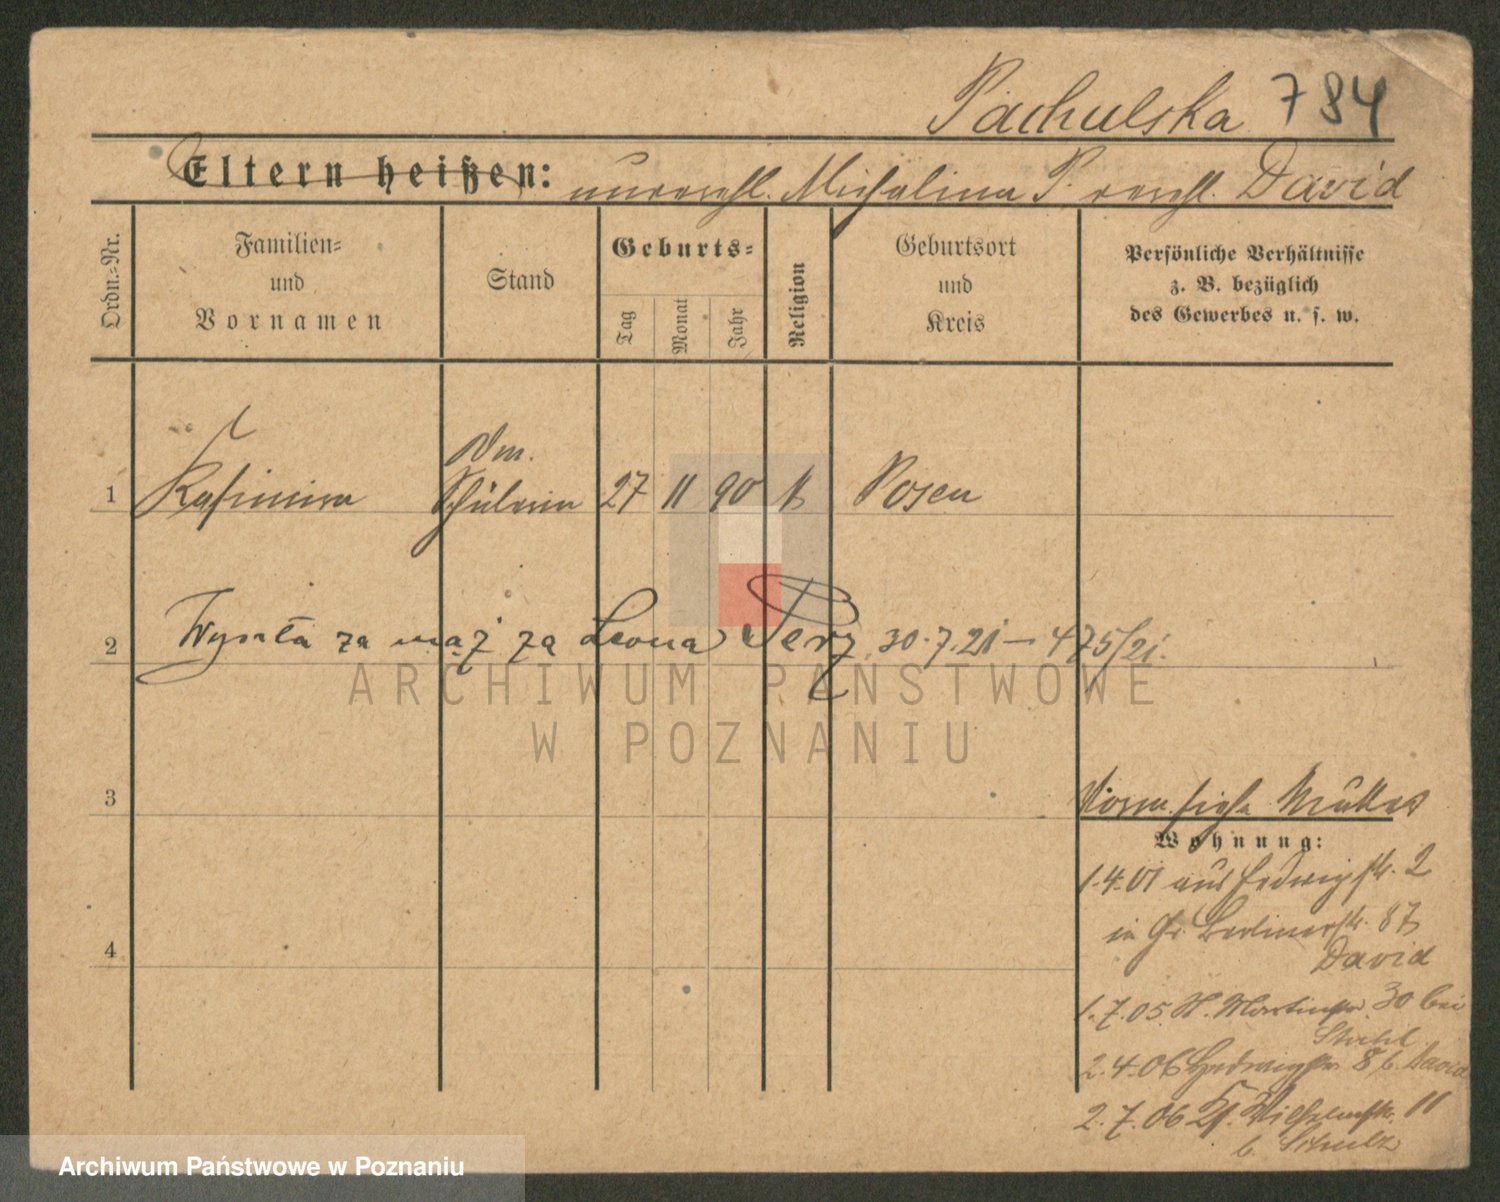 Pachulska 784
Eltern heißen: unverehl. Michalina P. verehl. David
Ordn.=Nr.
Familien=
und
Vornamen
Stand
Geburts=
Tag
Monat
Jahr
Religion
Geburtsort
und
Kreis
Persönliche Verhältnisse
z. B. bezüglich
des Gewerbes u. s. w.
Dm.
1 Kasimira Schülerin 27 11 90 k Posen
2 Wyszła za mąż za Leona Perz 30.7.21 — 475/21.
ARCHIWUM PAŃSTWOWE
W POZNANIU
3
siehe Mutter
Wohnung:
1.4.01 aus Hedwigstr. 2
in Gr. Berlinerstr. 87
David
4
1.7.05 St. Martinstr. 30 bei
Stahl
2.4.06 Hedwigstr. 8 b. David
2.7.06 Wilhelmstr. 11
b. Schulz
Archiwum Państwowe w Poznaniu